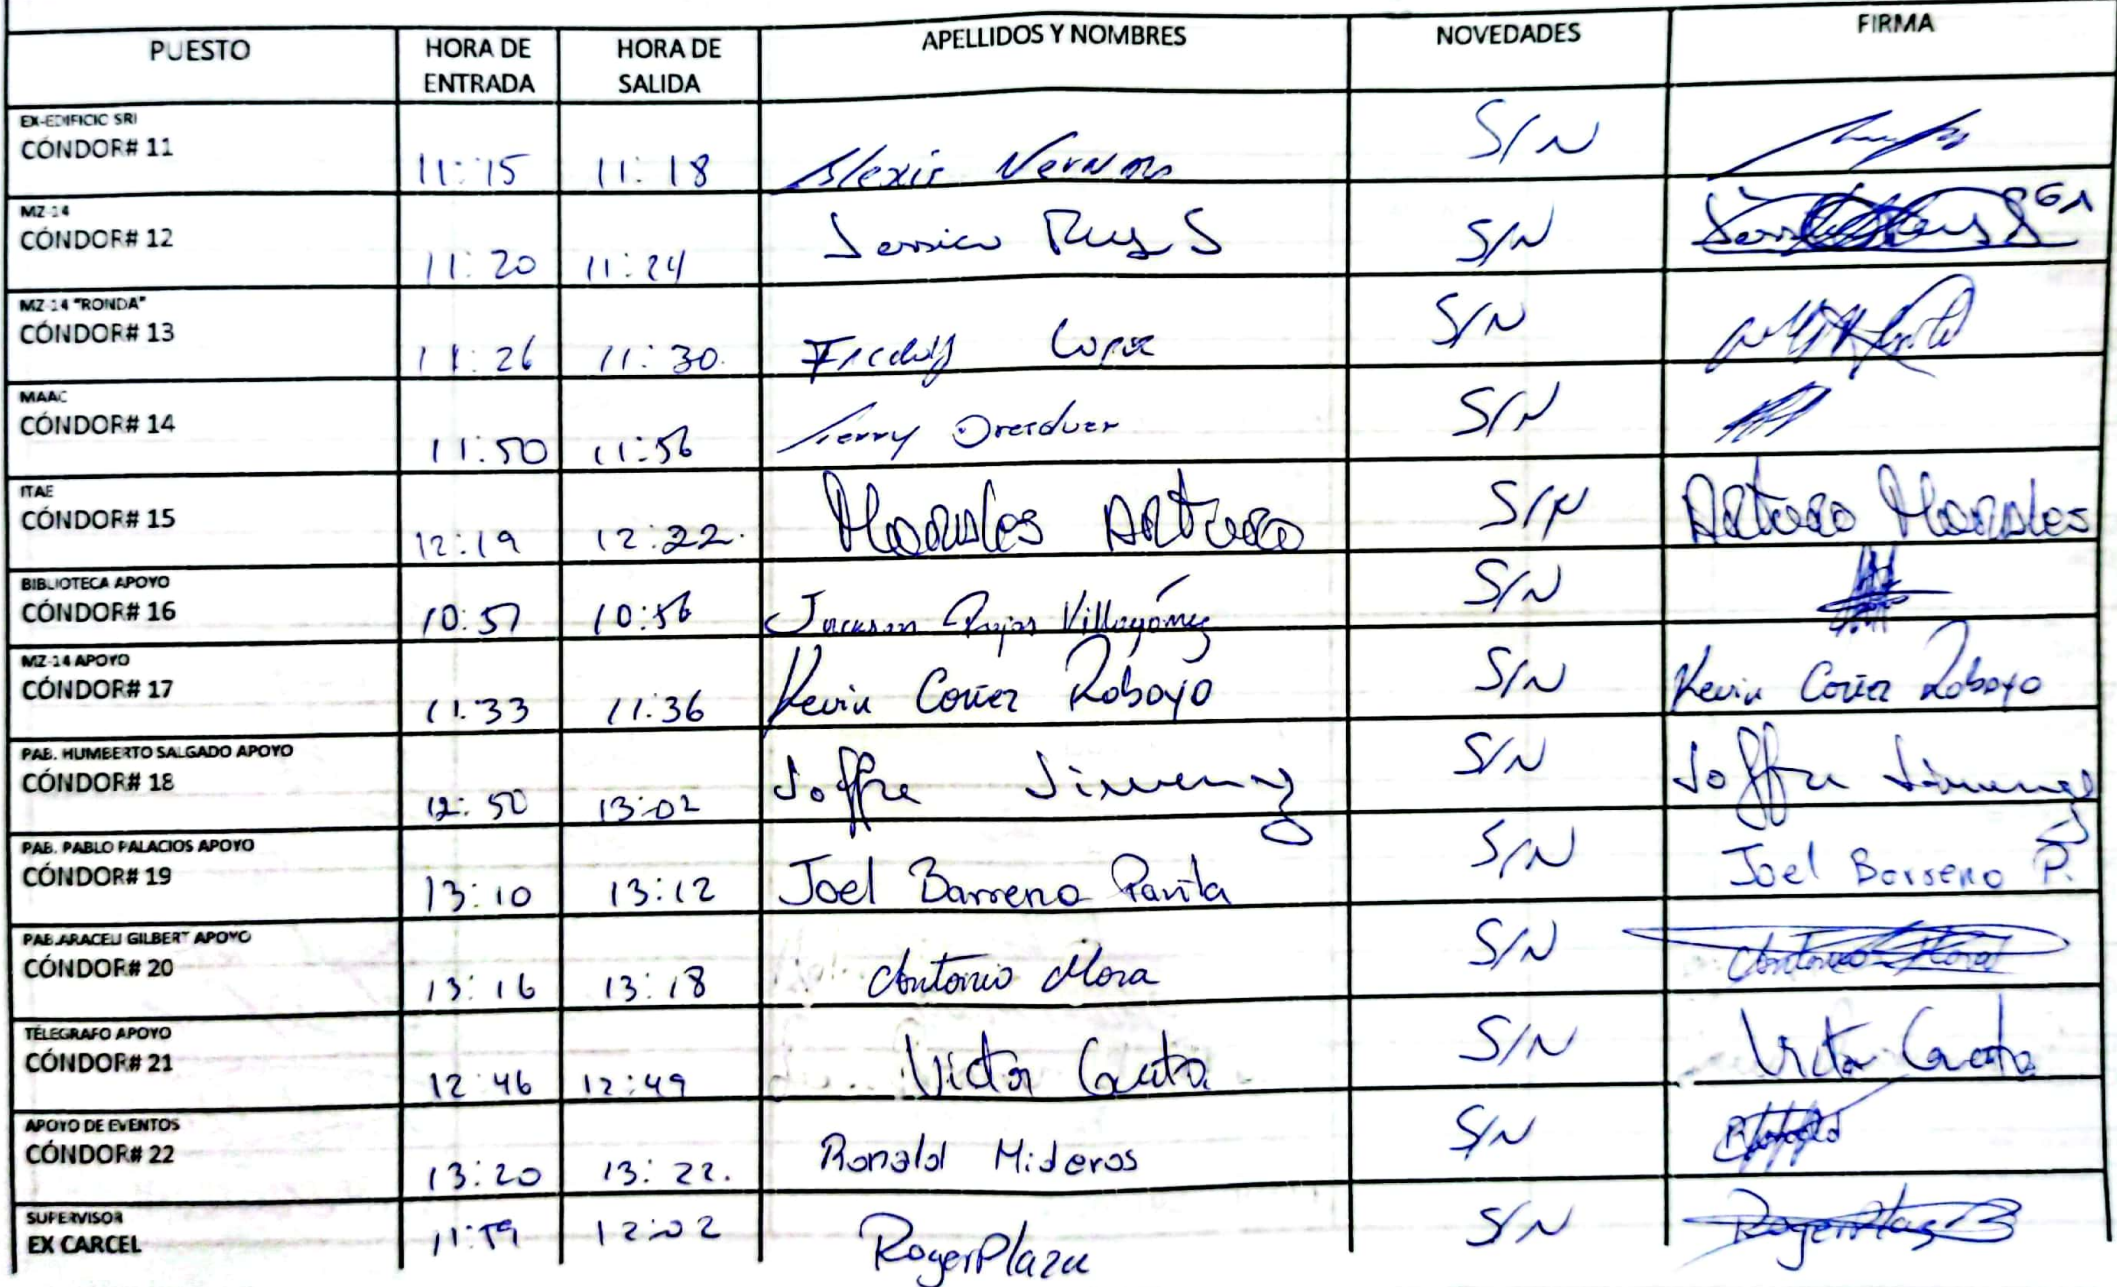 PUESTO HORA DE ENTRADA HORA DE SALIDA APELLIDOS Y NOMBRES NOVEDADES FIRMA
EX-EDIFICIO SRI
CÓNDOR# 11 11:15 11:18 Alexis S/N
MZ-14
CÓNDOR# 12 11:20 11:24 Jessica S/N
MZ-14 "RONDA"
CÓNDOR# 13 11:26 11:30. Freddy S/N
MAAC
CÓNDOR# 14 11:50 11:56 S/N
ITAE
CÓNDOR# 15 12:19 12:22. Morales Arturo S/N Arturo Morales
BIBLIOTECA APOYO
CÓNDOR# 16 10:56 Jackson Rojas Villagómez S/N
MZ-14 APOYO
CÓNDOR# 17 11:33 11:36 Kevin Roboyo S/N Kevin Roboyo
PAB. HUMBERTO SALGADO APOYO
CÓNDOR# 18 12:50 13:02 Joffre Jimenez S/N Joffre Jimenez
PAB. PABLO PALACIOS APOYO
CÓNDOR# 19 13:10 13:12 Joel Barreno S/N Joel Barreno P.
PAB.ARACELI GILBERT APOYO
CÓNDOR# 20 13:16 13:18 Antonio Mora S/N Antonio Mora
TELEGRAFO APOYO
CÓNDOR# 21 12:46 12:49 Victor S/N Victor
APOYO DE EVENTOS
CÓNDOR# 22 13:20 13:22. Ronald Mideros S/N
SUPERVISOR
EX CARCEL 11:59 12:02 Roger Plaza S/N